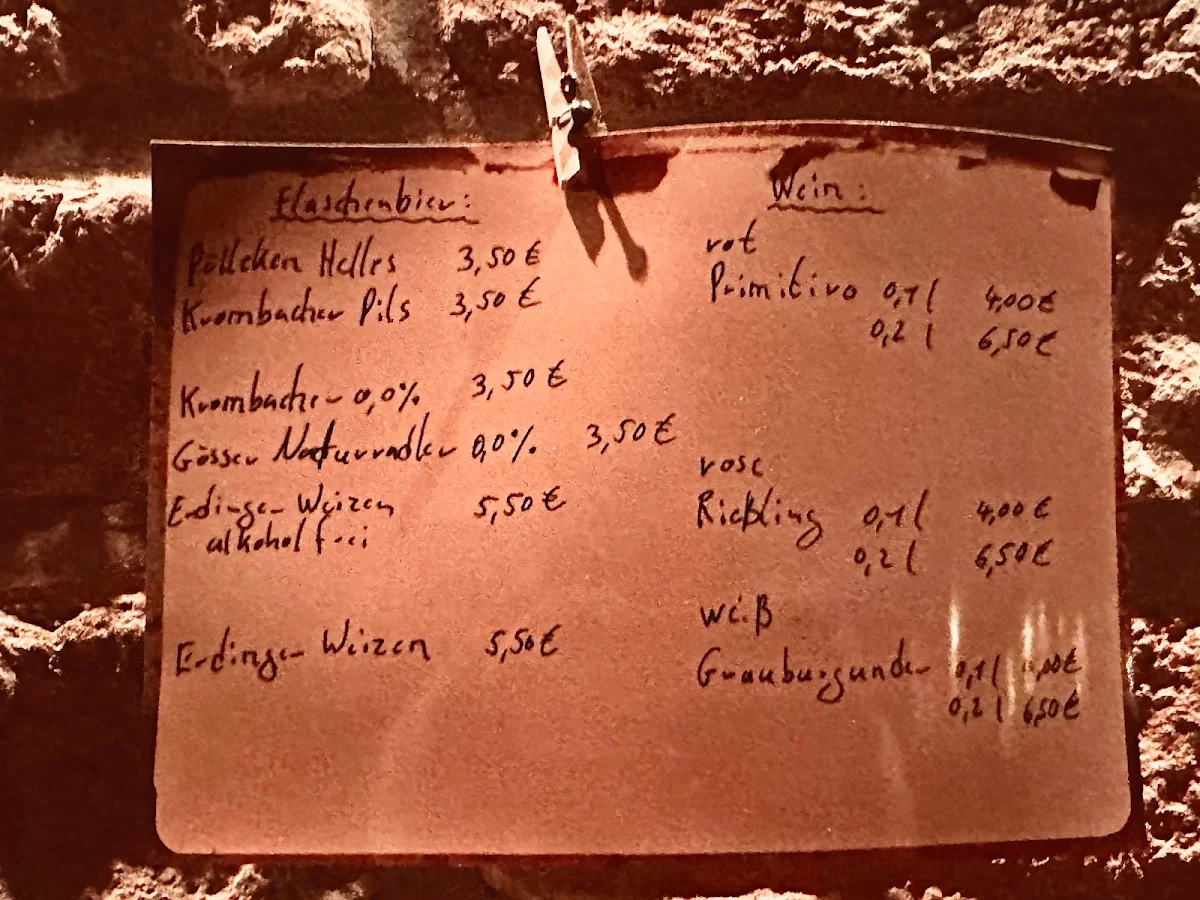 Flaschenbier:
Pölleken Helles 3,50 €
Krombacher Pils 3,50 €
Krombacher 0,0% 3,50 €
Gösser Naturradler 0,0%. 3,50 €
Erdinger Weizen 5,50 €
alkoholfrei
Erdinger Weizen 5,50 €
Wein:
rot
Primitivo 0,1 l 4,00 €
0,2 l 6,50 €
rose
Rießling 0,1 l 4,00 €
0,2 l 6,50 €
weiß
Grauburgunder 0,1 l
0,2 l 6,50 €